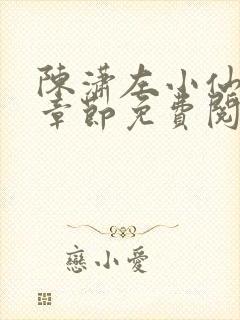 陳瀟左小仙
章節免費閱
戀小愛